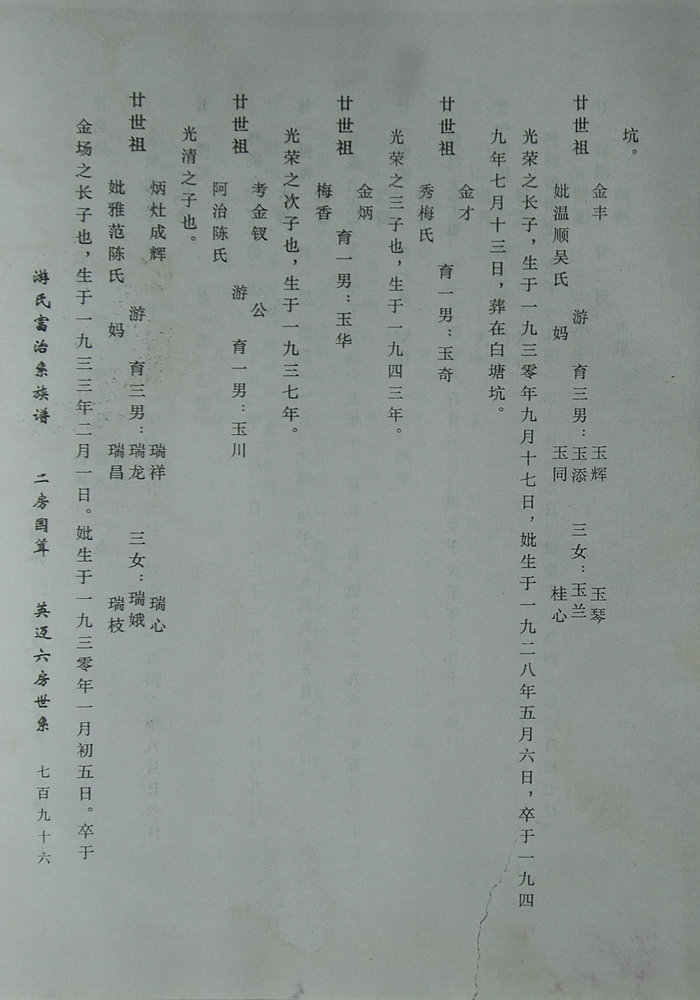 坑。
廿世祖 金丰 妣温顺吴氏 游 妈 育三男：玉辉 玉添 玉同 三女：玉琴 玉兰 桂心
光荣之长子，生于一九三零年九月十七日，妣生于一九二八年五月六日，卒于一九四
九年七月十三日，葬在白塘坑。
廿世祖 金才 秀梅氏 育一男：玉奇
光荣之三子也，生于一九四三年。
廿世祖 金炳 梅香 育一男：玉华
光荣之次子也，生于一九三七年。
廿世祖 考金钗 公 阿治陈氏 游 育一男：玉川
光清之子也。
廿世祖 炳灶成辉 妣雅范陈氏 游 妈 育三男：瑞祥 瑞龙 瑞昌 三女：瑞心 瑞娥 瑞枝
金场之长子也，生于一九三三年二月一日。妣生于一九三零年一月初五日。卒于
游氏富治系族谱 二房国 英迈六房世系 七百九十六